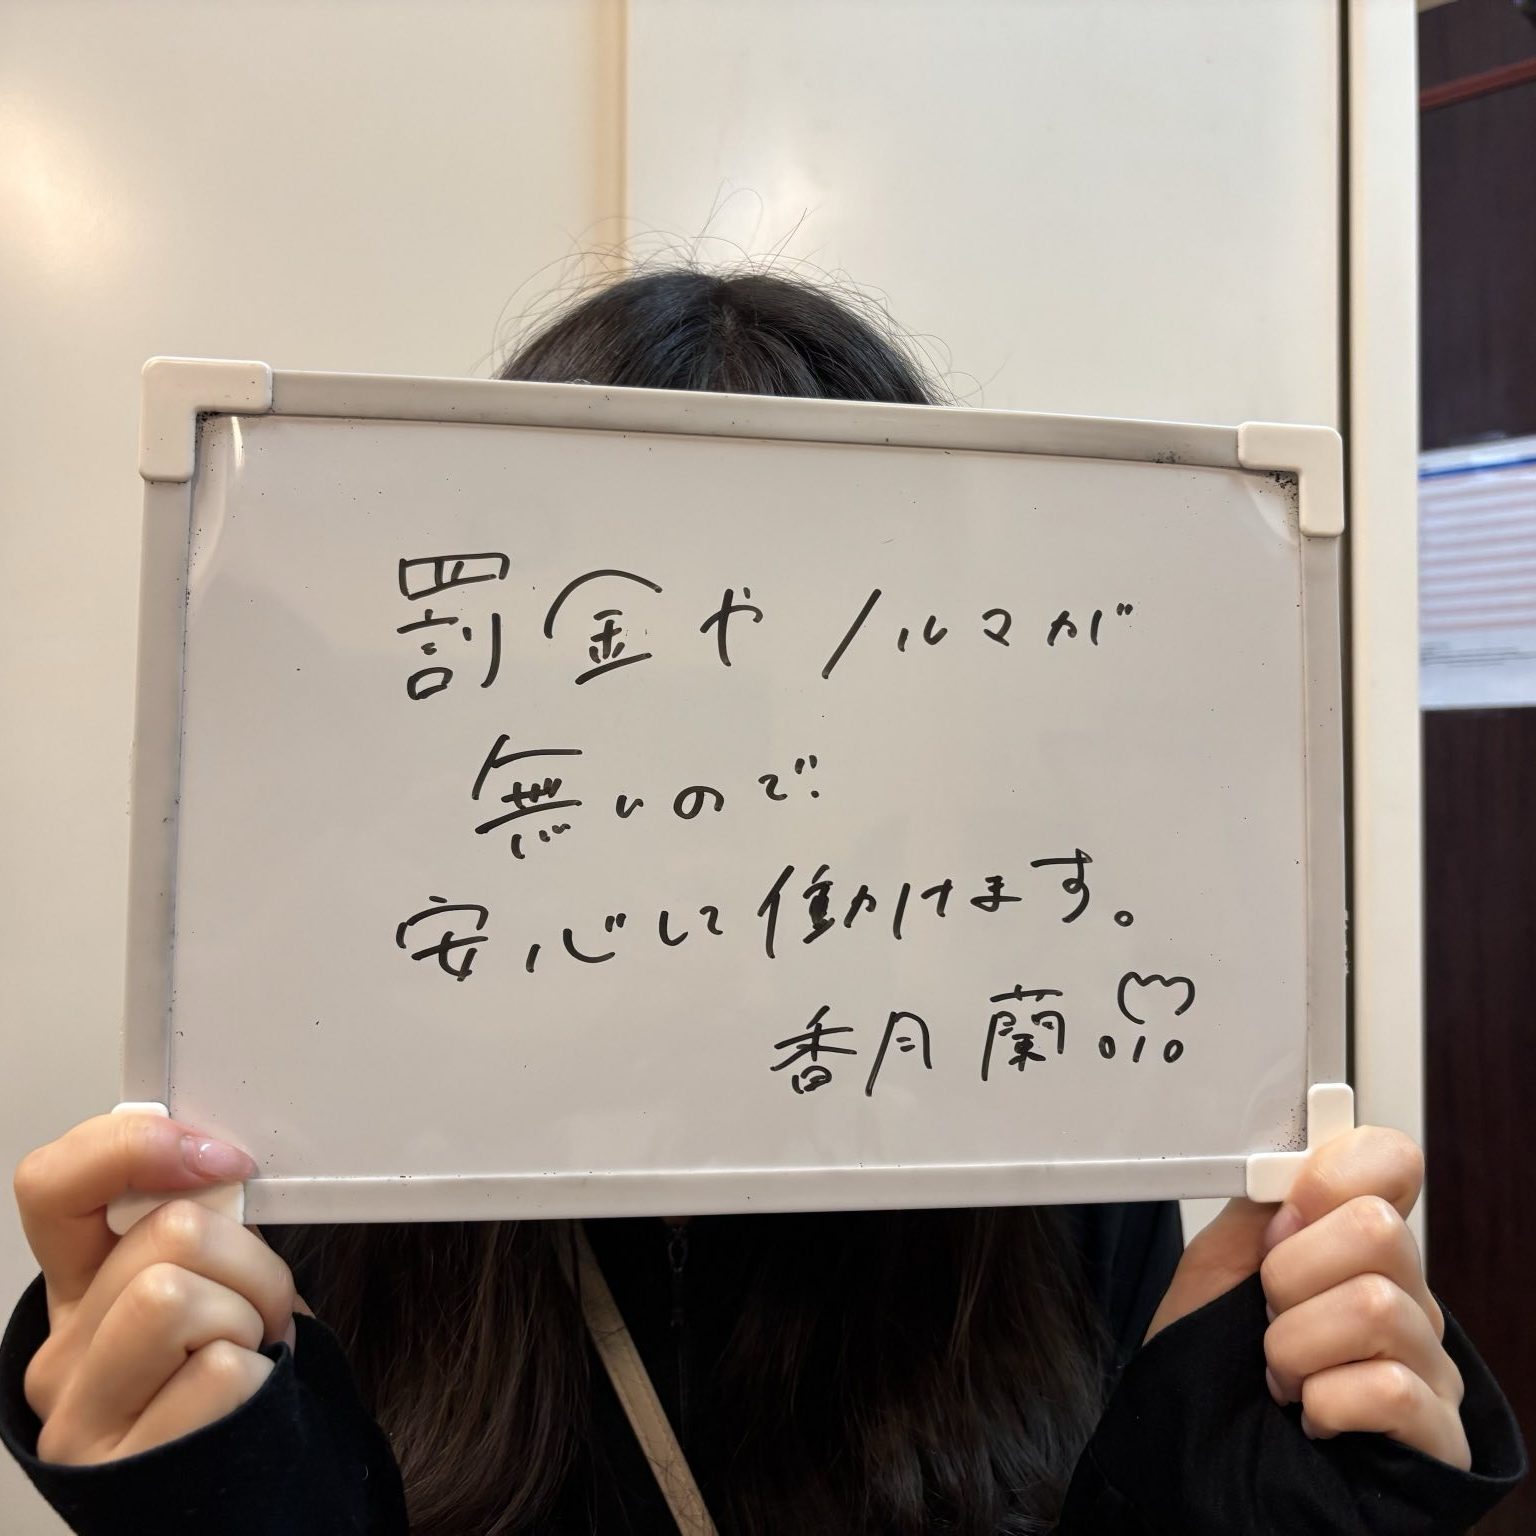 罰金やノルマが
無いので
安心して働けます。
香月 蘭